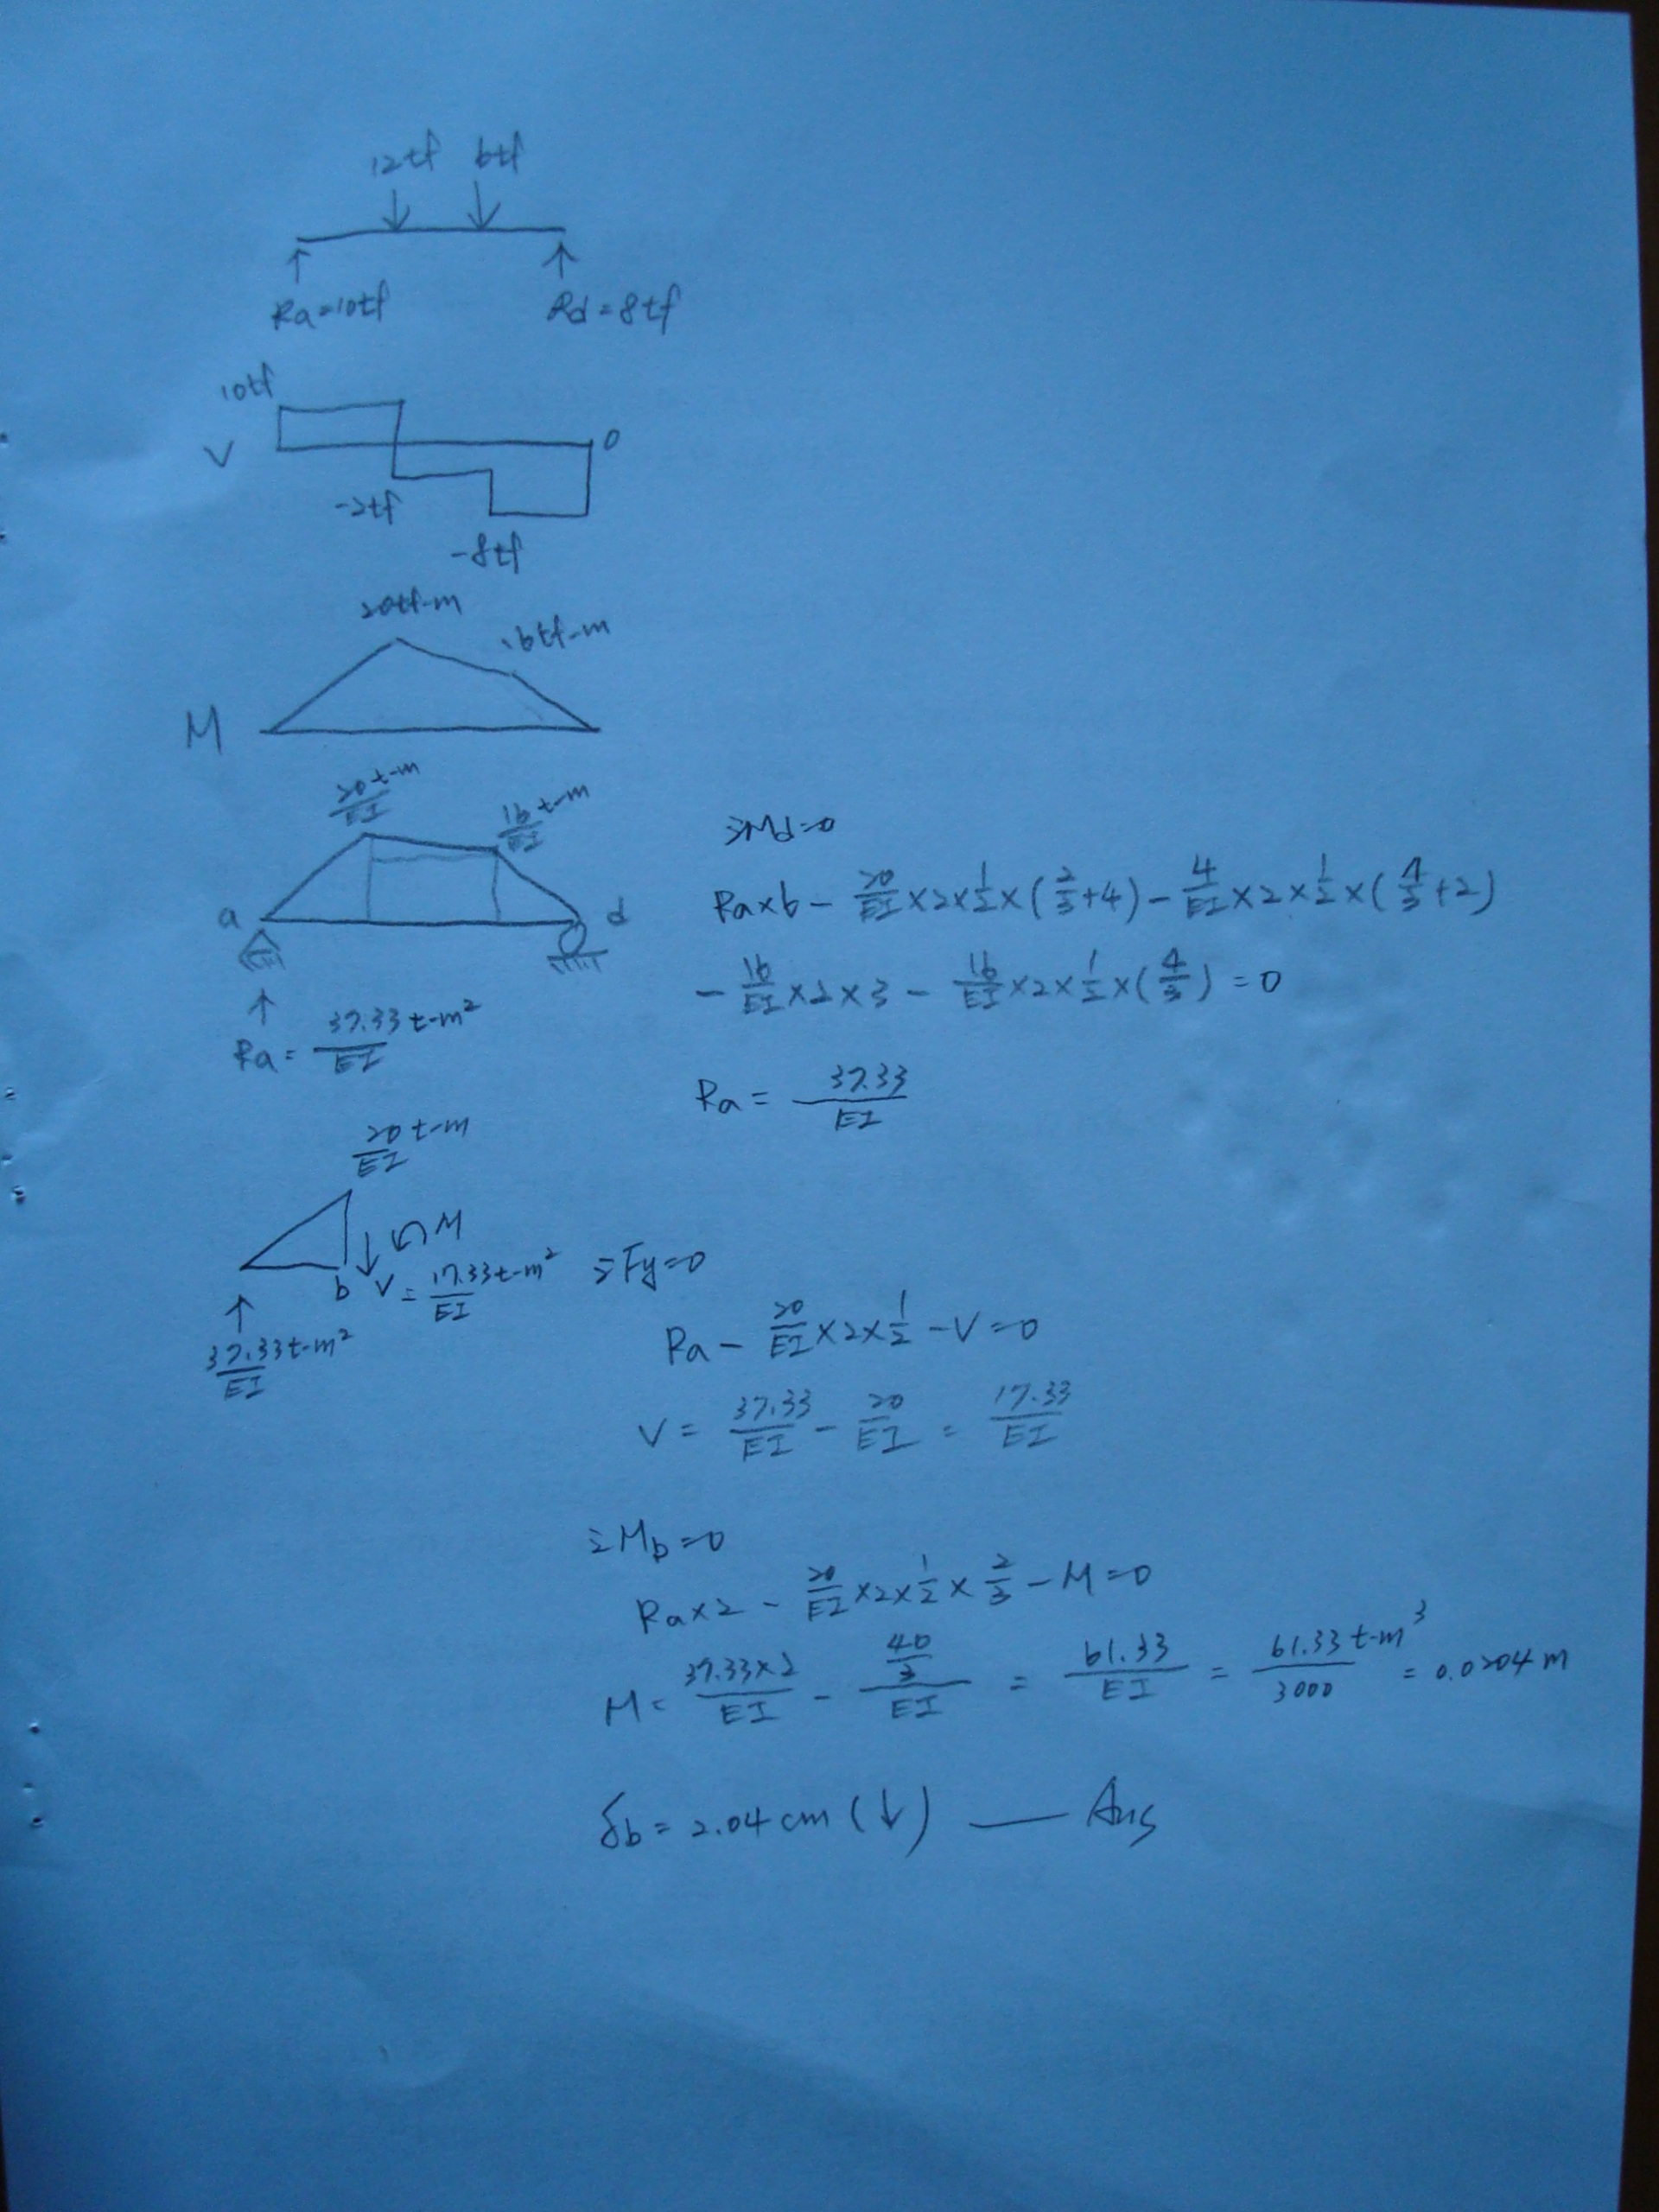 12tf 6tf
Ra=10tf Rd=8tf
10tf
V 0
-2tf
-8tf
20tf-m
16tf-m
M
20/EI t-m
16/EI t-m
a d
Ra = 37.33 t-m²/EI
ΣMd=0
Ra×6 - 20/EI ×2×1/2×(2/3+4) - 4/EI ×2×1/2×(4/3+2)
- 16/EI ×2×3 - 16/EI ×2×1/2×(4/3) = 0
Ra = 37.33/EI
20/EI t-m
M
b V = 17.33 t-m²/EI
37.33 t-m²/EI
ΣFy=0
Ra - 20/EI ×2×1/2 - V = 0
V = 37.33/EI - 20/EI = 17.33/EI
ΣMb=0
Ra×2 - 20/EI ×2×1/2 × 2/3 - M = 0
M = 37.33×2/EI - 40/3/EI = 61.33/EI = 61.33 t-m³/3000 = 0.0204 m
δb = 2.04 cm (↓) — Ans